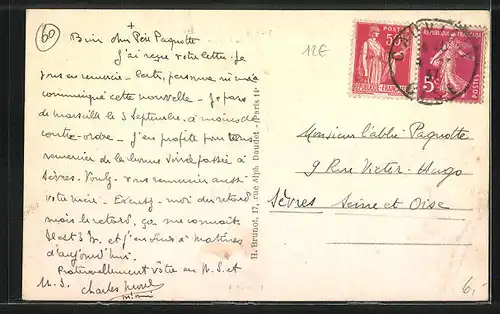 60
+
Bien cher Père Paquotte
J'ai reçu votre lettre. Je
vous en remercie - Certes, personne ne m'a
communiqué cette nouvelle - Je pars
de Marseille le 3 Septembre, à moins de
contre-ordre - J'en profite pour vous
remercier de la bonne soirée passée à
Sèvres. Voulez-vous remercier aussi
votre mère - Excusez-moi du retard
mais le retard, ça me connait.
Il est 3 h. et j'en suis à matines
d'aujourd'hui.
Fraternellement vôtre en N.S. et
M. I. Charles
12€
H. Brunot, 17, rue Alph. Daudet - Paris 14
50c
POSTES
REPUBLIQUE FRANÇAISE
REPUBLIQUE FRANÇAISE
5c
POSTES
Monsieur l'abbé Paquotte
9 Rue Victor-Hugo
Sèvres Seine et Oise
6,-